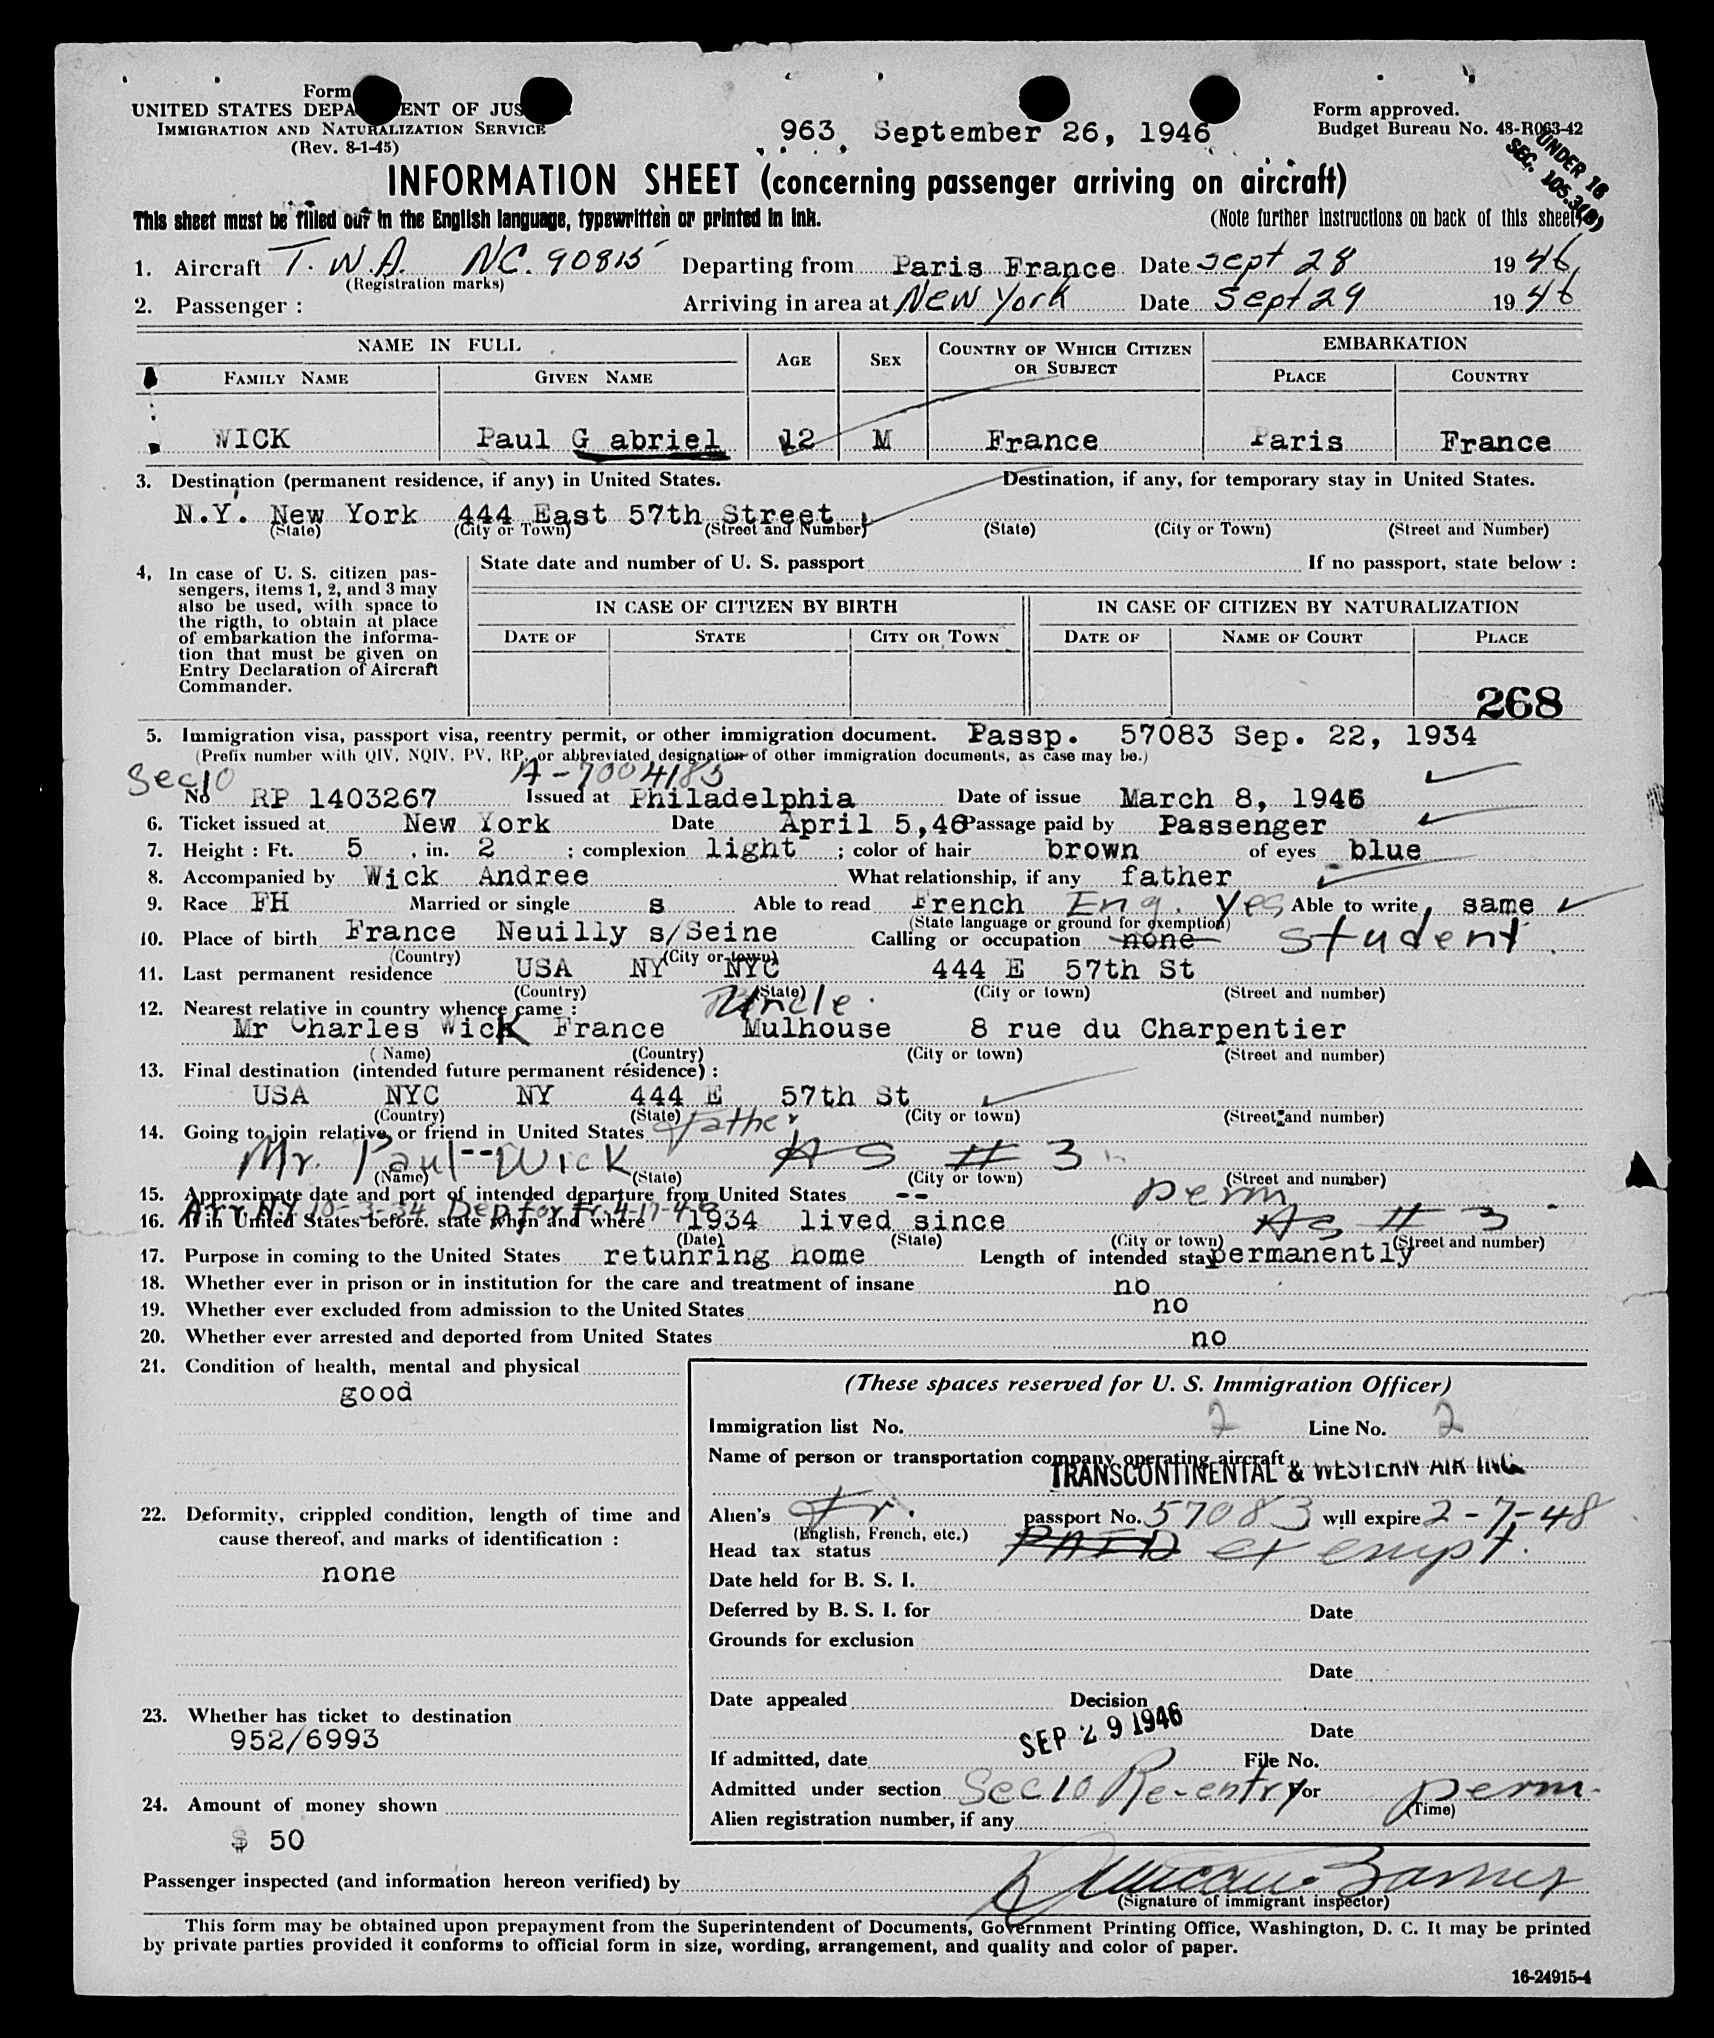 Form
UNITED STATES DEPA ENT OF JUS
IMMIGRATION AND NATURALIZATION SERVICE
(Rev. 8-1-45)
963 September 26, 1946
Form approved.
Budget Bureau No. 43-R063-42
UNDER 16
SEC. 105.3(B)
INFORMATION SHEET (concerning passenger arriving on aircraft)
This sheet must be filled out in the English language, typewritten or printed in ink.
(Note further instructions on back of this sheet)
1. Aircraft T.W.A. NC. 90815 Departing from Paris France Date Sept 28 1946
(Registration marks)
2. Passenger : Arriving in area at New York Date Sept 29 1946
NAME IN FULL AGE SEX COUNTRY OF WHICH CITIZEN OR SUBJECT EMBARKATION
FAMILY NAME GIVEN NAME PLACE COUNTRY
WICK Paul G abriel 12 M France Paris France
3. Destination (permanent residence, if any) in United States. Destination, if any, for temporary stay in United States.
N.Y. New York 444 East 57th Street
(State) (City or Town) (Street and Number) (State) (City or Town) (Street and Number)
4. In case of U. S. citizen pas-
sengers, items 1, 2, and 3 may
also be used, with space to
the rigth, to obtain at place
of embarkation the informa-
tion that must be given on
Entry Declaration of Aircraft
Commander.
State date and number of U. S. passport If no passport, state below :
IN CASE OF CITIZEN BY BIRTH IN CASE OF CITIZEN BY NATURALIZATION
DATE OF STATE CITY OR TOWN DATE OF NAME OF COURT PLACE
268
5. Immigration visa, passport visa, reentry permit, or other immigration document. Passp. 57083 Sep. 22, 1934
(Prefix number with QIV, NQIV, PV, RP, or abbreviated designation of other immigration documents, as case may be.)
Sec 10 A-7004183
No RP 1403267 Issued at Philadelphia Date of issue March 8, 1946
6. Ticket issued at New York Date April 5,46 Passage paid by Passenger
7. Height : Ft. 5 , in. 2 ; complexion light ; color of hair brown of eyes blue
8. Accompanied by Wick Andree What relationship, if any father
9. Race FH Married or single s Able to read French Eng. Yes Able to write same
(State language or ground for exemption)
10. Place of birth France Neuilly s/Seine Calling or occupation none Student
(Country) (City or town)
11. Last permanent residence USA NY NYC 444 E 57th St
(Country) (State) (City or town) (Street and number)
12. Nearest relative in country whence came : Uncle
Mr Charles Wick France Mulhouse 8 rue du Charpentier
(Name) (Country) (City or town) (Street and number)
13. Final destination (intended future permanent résidence) :
USA NYC NY 444 E 57th St
(Country) (State) (City or town) (Street and number)
14. Going to join relative or friend in United States Father
Mr. Paul -- Wick AS # 3
(Name) (State) (City or town) (Street and number)
15. Approximate date and port of intended departure from United States -- perm
Arr N.Y 10-3-34 Dep for Fr. 4-17-46
16. If in United States before, state when and where 1934 lived since AS # 3
(Date) (State) (City or town) (Street and number)
17. Purpose in coming to the United States retunring home Length of intended stay permanently
18. Whether ever in prison or in institution for the care and treatment of insane no
19. Whether ever excluded from admission to the United States no
20. Whether ever arrested and deported from United States no
21. Condition of health, mental and physical
good
(These spaces reserved for U. S. Immigration Officer)
Immigration list No. 2 Line No. 2
Name of person or transportation company operating aircraft
TRANSCONTINENTAL & WESTERN AIR INC.
22. Deformity, crippled condition, length of time and
cause thereof, and marks of identification :
none
Alien's Fr. passport No. 57083 will expire 2-7-48
(English, French, etc.)
Head tax status PAID exempt.
Date held for B. S. I.
Deferred by B. S. I. for Date
Grounds for exclusion
Date
Date appealed Decision
Date
23. Whether has ticket to destination
952/6993
SEP 29 1946
If admitted, date File No.
Admitted under section Sec 10 Re-entry For perm.
(Time)
Alien registration number, if any
24. Amount of money shown
$ 50
Passenger inspected (and information hereon verified) by
(Signature of immigrant inspector)
This form may be obtained upon prepayment from the Superintendent of Documents, Government Printing Office, Washington, D. C. It may be printed
by private parties provided it conforms to official form in size, wording, arrangement, and quality and color of paper.
16-24915-4